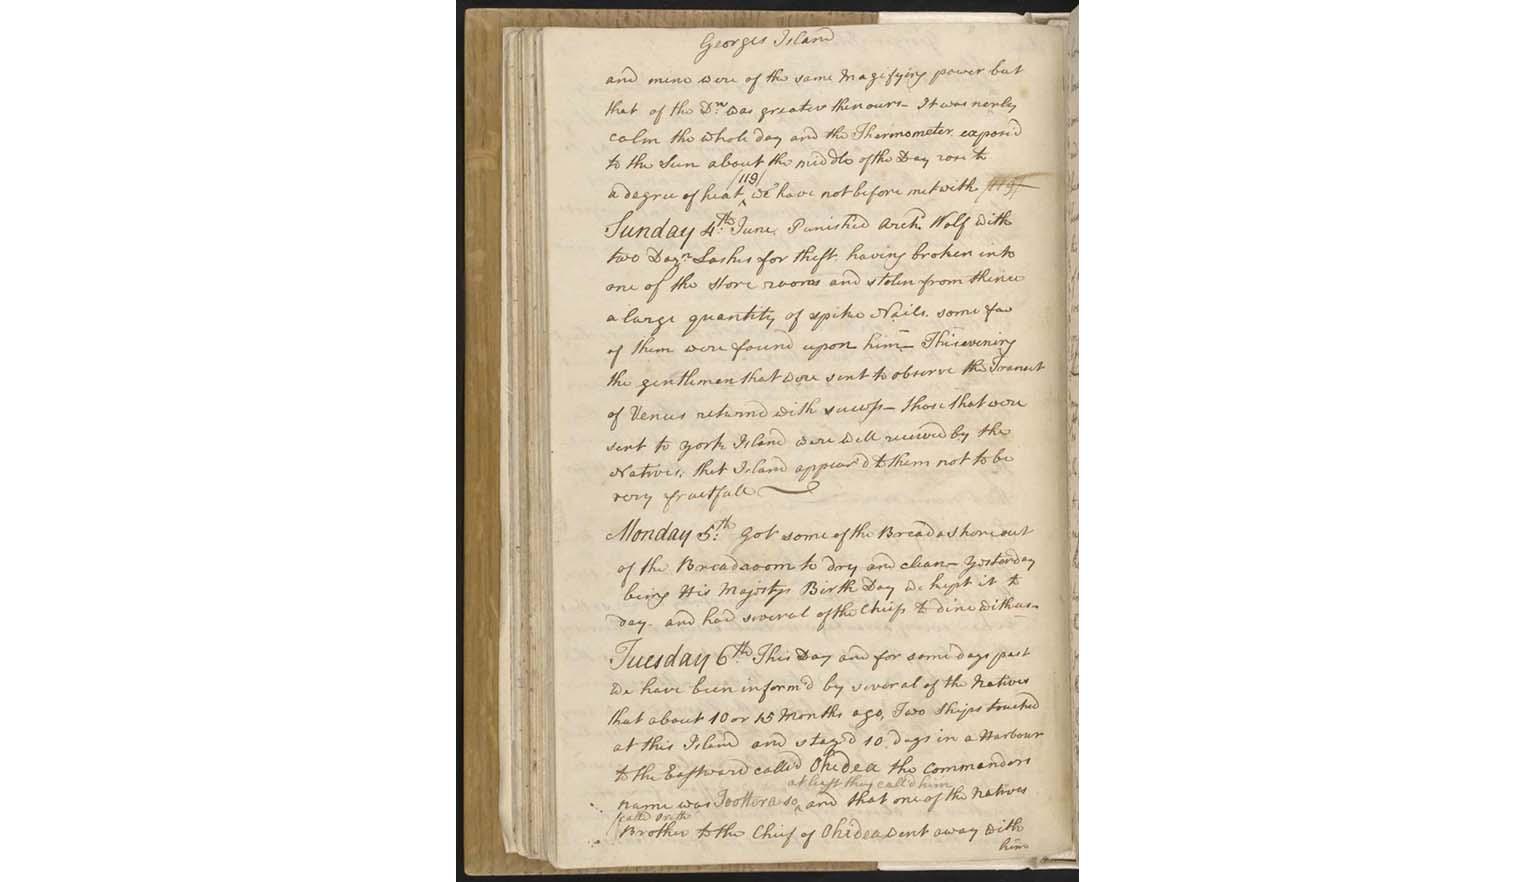 Georges Island
and mine were of the same Magifying power but
that of the Dr. was greater then ours — It was nerly
calm the whole day and the Thermometer expos'd
to the Sun about the middle of the Day rose to
119
a degree of heat ^ we have not before met with 119 —
Sunday 4th. June. Punish'd Archd. Wolf with
two Dozn. Lashes for theft, having broken into
one of the Store rooms and stolen from thence
a large quantity of spike Nails, some few
of them were found upon him — This evening
the gentlemen that were sent to observe the Transit
of Venus return'd with success — those that were
sent to York Island were well received by the
Natives, that Island appear'd to them not to be
very fruitfull
Monday 5.th Got some of the Bread ashore out
of the Breadroom to dry and clean — Yesterday
being His Majestys Birth Day we kept it to
day. and had several of the Chiefs to dine with us —
Tuesday 6th. This Day and for some days past
we have been inform'd by several of the Natives
that about 10 or 15 Months ago, Two Ships touched
at this Island and stay'd 10 days in a Harbour
to the Eastward calle'd Ohidea the Commanders
at least they call'd him
name was Toottera so ^ and that one of the Natives
call'd
Brother to the Chief of Ohidea went away with
him